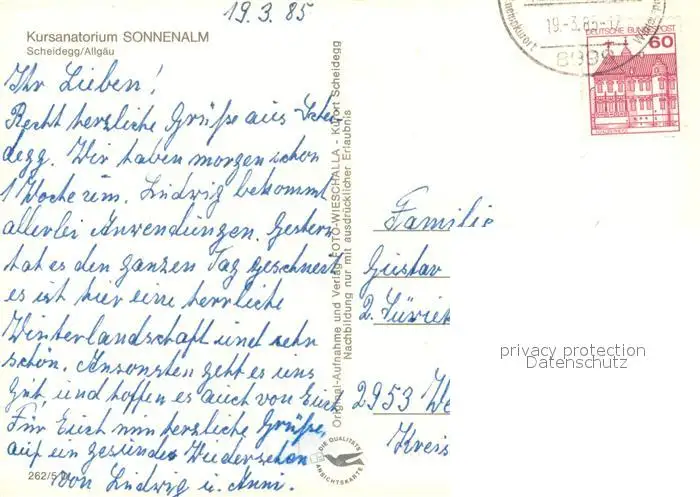 19.3.85
Kursanatorium SONNENALM
Scheidegg/Allgäu
Ihr Lieben!
Recht herzliche Grüße aus Schei
degg. Wir haben morgen schon
1 Woche um. Ludwig bekommt
allerlei Anwendungen. Gestern
hat es den ganzen Tag geschneit
es ist hier eine herrliche
Winterlandschaft und sehr
schön. Ansonsten geht es uns
gut, und hoffen es auch von Euch
Für Euch nun herzliche Grüße,
auf ein gesundes Wiedersehen
von Ludwig u. Anni.
262/5
Original-Aufnahme und Verlag FOTO-WIESCHALLA - Kurort Scheidegg
Nachbildung nur mit ausdrücklicher Erlaubnis
DIE QUALITÄTS
ANSICHTSKARTE
19.-3.85-17
DEUTSCHE BUNDESPOST
60
Familie
Gustav
2. Lüvich
2953 We
Kreis
privacy protection
Datenschutz